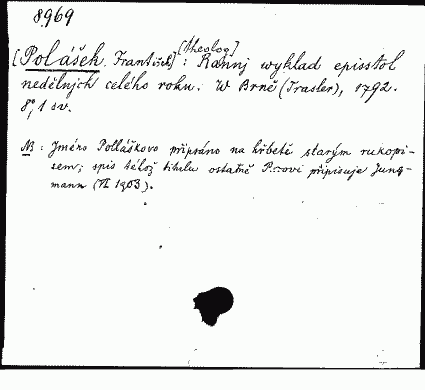 8969
[theolog]
[Polášek, František] : Rannj wyklad episstol
nedělnjch celého roku. W Brně (Trasler), 1792.
8°, 1 sv.
NB : Jméno Polláškovo připsáno na hřbetě starým rukopi-
sem; spis téhož titulu ostatně P.-ovi připisuje Jung-
mann (VI 1903).